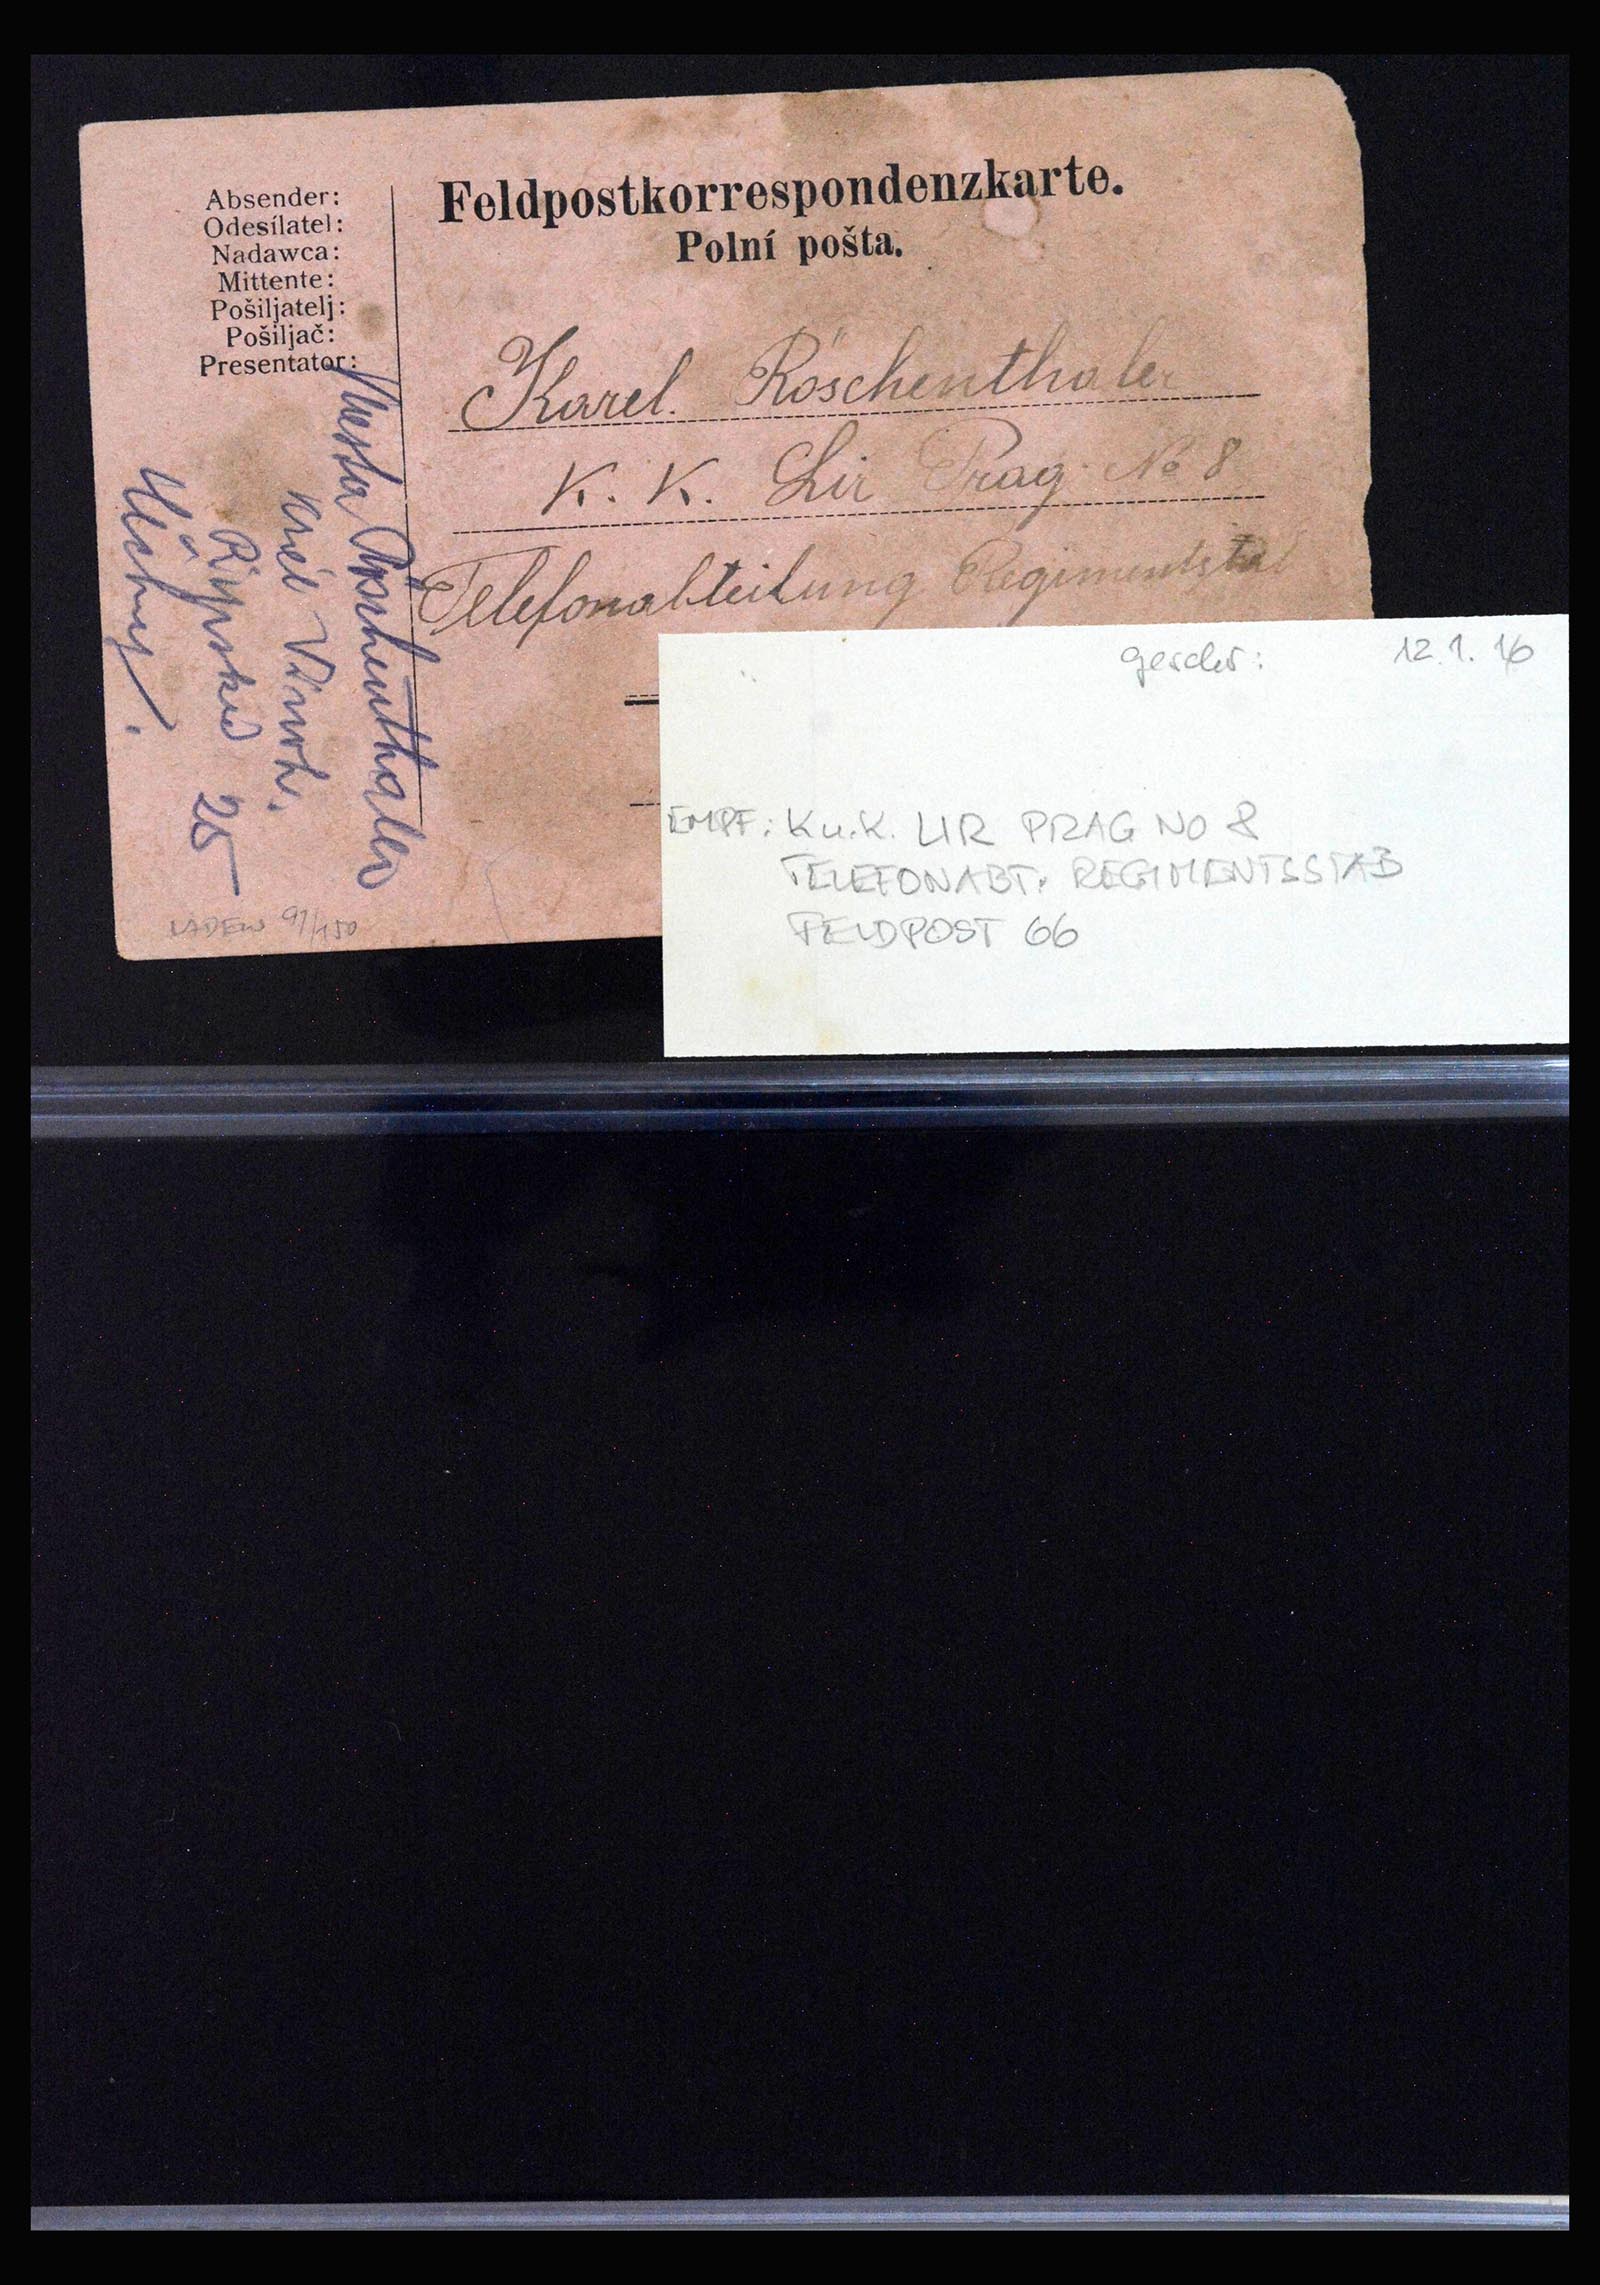 Absender:
Odesílatel:
Nadawca:
Mittente:
Pošiljatelj:
Pošiljač:
Presentator:
Feldpostkorrespondenzkarte.
Polní pošta.
Karel. Röschenthaler
K. K. Lir Prag No 8
Telefonabteilung Regimentstab
Röschenthaler
Král Vinoh.
Rypská 25
gerchr: 12.1.16
EMPF: K u. K. LIR PRAG NO 8
TELEFONABT. REGIMENTSSTAB
FELDPOST 66
91/150